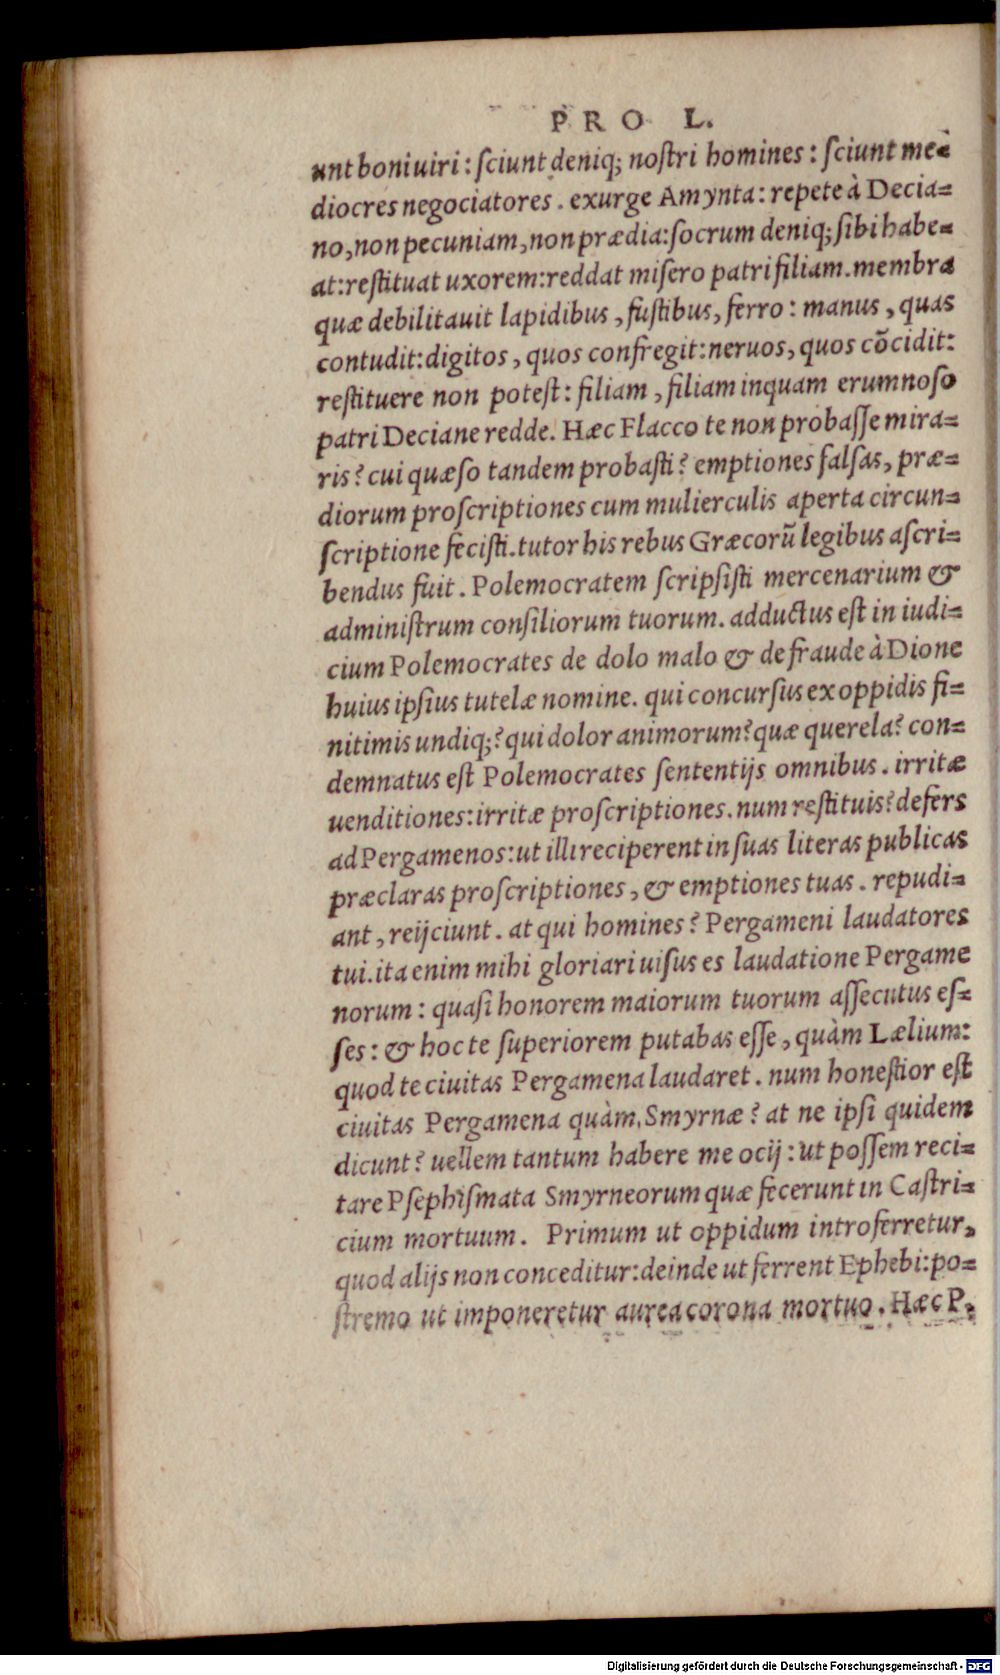 PRO L.
unt boni uiri : ſciunt deniq; noſtri homines : ſciunt me=
diocres negociatores . exurge Amynta : repete à Decia=
no, non pecuniam, non prædia: ſocrum deniq; ſibi habe=
at: reſtituat uxorem: reddat miſero patri filiam. membra
quæ debilitauit lapidibus , fuſtibus, ferro : manus , quas
contudit: digitos , quos confregit: neruos, quos cõcidit:
reſtituere non poteſt : filiam , filiam inquam erumnoſo
patri Deciane redde. Hæc Flacco te non probaſſe mira=
ris? cui quæſo tandem probaſti? emptiones falſas, præ=
diorum proſcriptiones cum mulierculis aperta circun=
ſcriptione feciſti. tutor his rebus Græcorũ legibus aſcri=
bendus fuit . Polemocratem ſcripſiſti mercenarium &
adminiſtrum conſiliorum tuorum. adductus eſt in iudi=
cium Polemocrates de dolo malo & de fraude à Dione
huius ipſius tutelæ nomine. qui concurſus ex oppidis fi=
nitimis undiq;? qui dolor animorum? quæ querela? con=
demnatus eſt Polemocrates ſententijs omnibus . irritæ
uenditiones: irritæ proſcriptiones. num reſtituis? defers
ad Pergamenos: ut illi reciperent in ſuas literas publicas
præclaras proſcriptiones , & emptiones tuas . repudi=
ant , reijciunt . at qui homines? Pergameni laudatores
tui. ita enim mihi gloriari uiſus es laudatione Pergame
norum : quaſi honorem maiorum tuorum aſſecutus eſ=
ſes : & hoc te ſuperiorem putabas eſſe , quàm Lælium:
quod te ciuitas Pergamena laudaret . num honeſtior eſt
ciuitas Pergamena quàm Smyrnæ? at ne ipſi quidem
dicunt? uellem tantum habere me ocij : ut poſſem reci=
tare Pſephiſmata Smyrneorum quæ fecerunt in Caſtri=
cium mortuum . Primum ut oppidum introferretur,
quod alijs non conceditur: deinde ut ferrent Ephebi: po=
ſtremo ut imponeretur aurea corona mortuo . Hæc P.
Digitalisierung gefördert durch die Deutsche Forschungsgemeinschaft - DFG